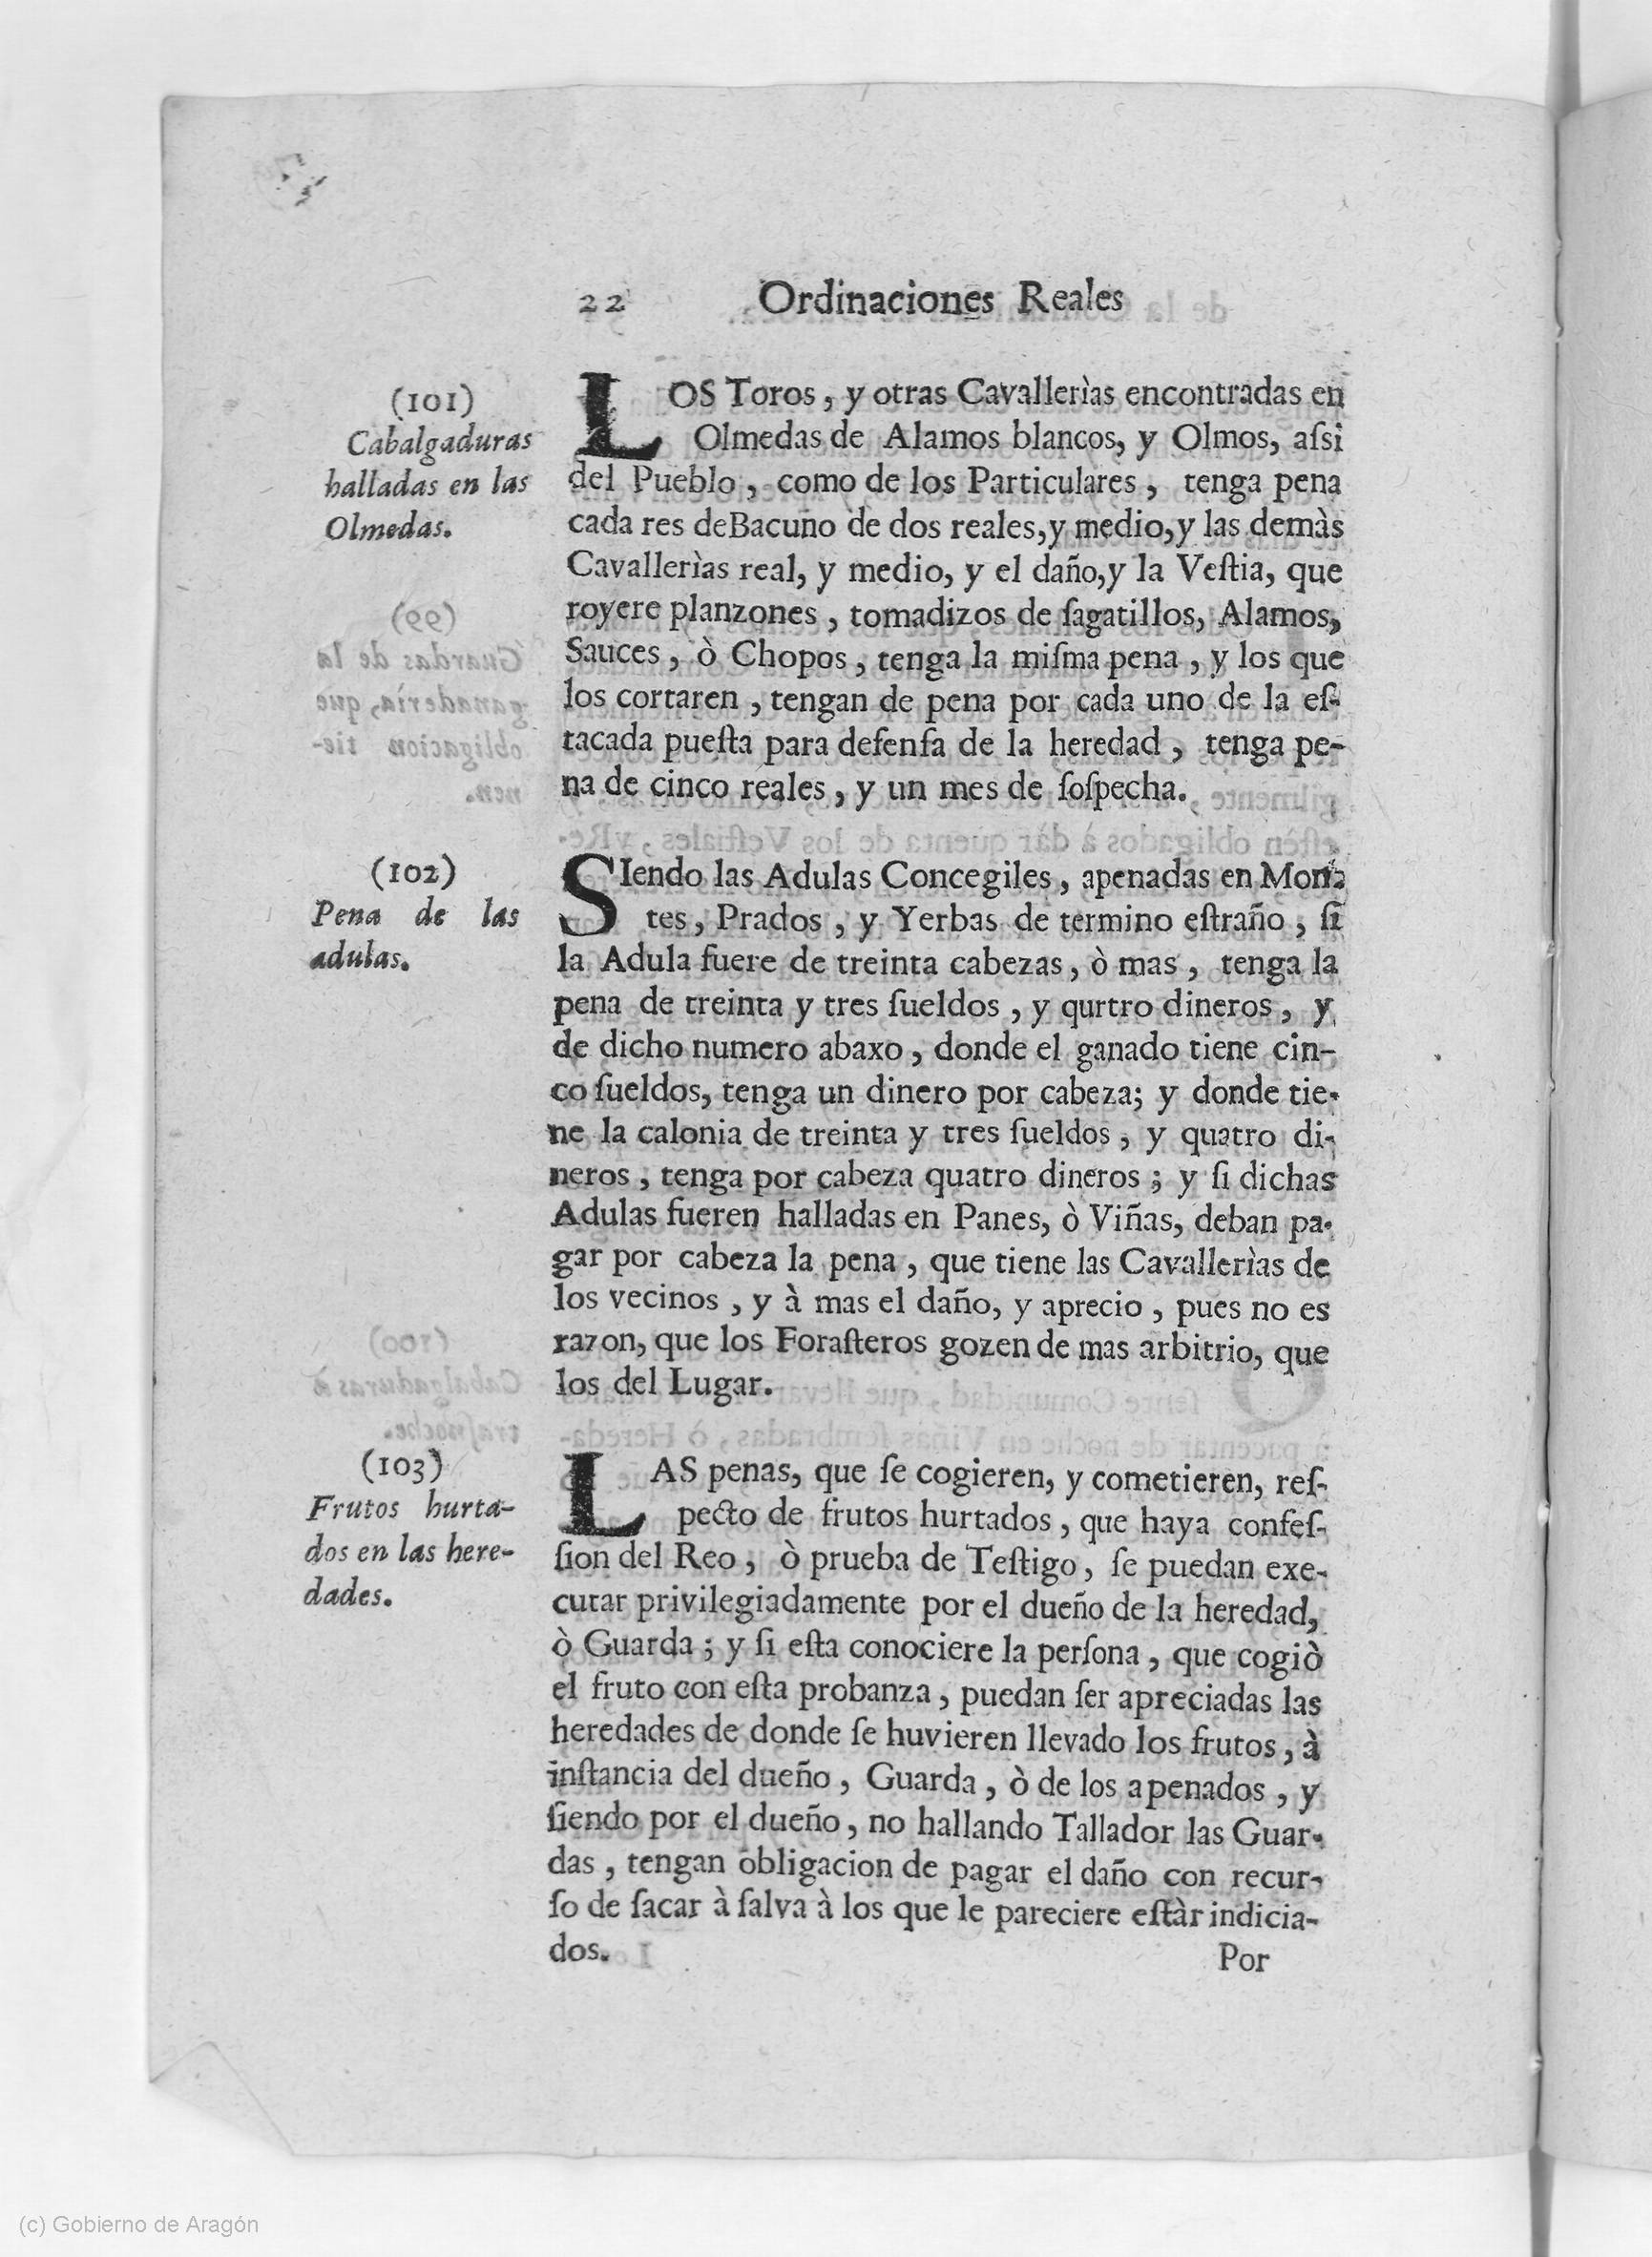 22 Ordinaciones Reales
(101)
Cabalgaduras
halladas en las
Olmedas.
LOS Toros, y otras Cavallerìas encontradas en
Olmedas de Alamos blancos, y Olmos, aſsi
del Pueblo, como de los Particulares, tenga pena
cada res deBacuno de dos reales, y medio, y las demàs
Cavallerìas real, y medio, y el daño, y la Veſtia, que
royere planzones, tomadizos de ſagatillos, Alamos,
Sauces, ò Chopos, tenga la miſma pena, y los que
los cortaren, tengan de pena por cada uno de la eſ-
tacada pueſta para defenſa de la heredad, tenga pe-
na de cinco reales, y un mes de ſoſpecha.
(102)
Pena de las
adulas.
SIendo las Adulas Concegiles, apenadas en Mon-
tes, Prados, y Yerbas de termino eſtraño, ſi
la Adula fuere de treinta cabezas, ò mas, tenga la
pena de treinta y tres ſueldos, y qurtro dineros, y
de dicho numero abaxo, donde el ganado tiene cin-
co ſueldos, tenga un dinero por cabeza; y donde tie-
ne la calonia de treinta y tres ſueldos, y quatro di-
neros, tenga por cabeza quatro dineros; y ſi dichas
Adulas fueren halladas en Panes, ò Viñas, deban pa-
gar por cabeza la pena, que tiene las Cavallerìas de
los vecinos, y à mas el daño, y aprecio, pues no es
razon, que los Foraſteros gozen de mas arbitrio, que
los del Lugar.
(103)
Frutos hurta-
dos en las here-
dades.
LAS penas, que ſe cogieren, y cometieren, reſ-
pecto de frutos hurtados, que haya confeſ-
ſion del Reo, ò prueba de Teſtigo, ſe puedan exe-
cutar privilegiadamente por el dueño de la heredad,
ò Guarda; y ſi eſta conociere la perſona, que cogiò
el fruto con eſta probanza, puedan ſer apreciadas las
heredades de donde ſe huvieren llevado los frutos, à
inſtancia del dueño, Guarda, ò de los apenados, y
ſiendo por el dueño, no hallando Tallador las Guar-
das, tengan obligacion de pagar el daño con recur-
ſo de ſacar à ſalva à los que le pareciere eſtàr indicia-
dos.
Por
(c) Gobierno de Aragón